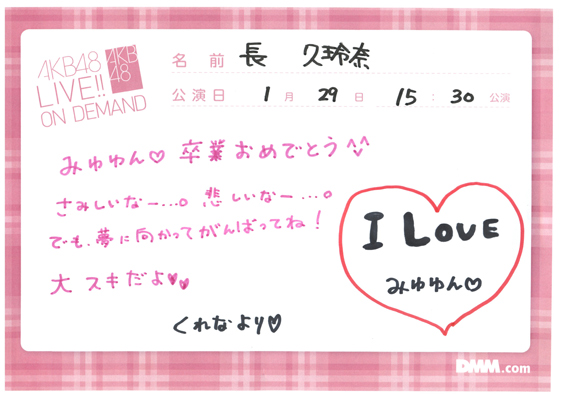 AKB48
LIVE!!
ON DEMAND
AKB
48
名前 長 久玲奈
公演日 1月 29日 15:30 公演
みゆゆん♡ 卒業おめでとう^^
さみしいなー...。悲しいなー...。
でも、夢に向かってがんばってね!
大スキだよ♥♥
くれなより♡
I LOVE
みゆゆん♡
DMM.com